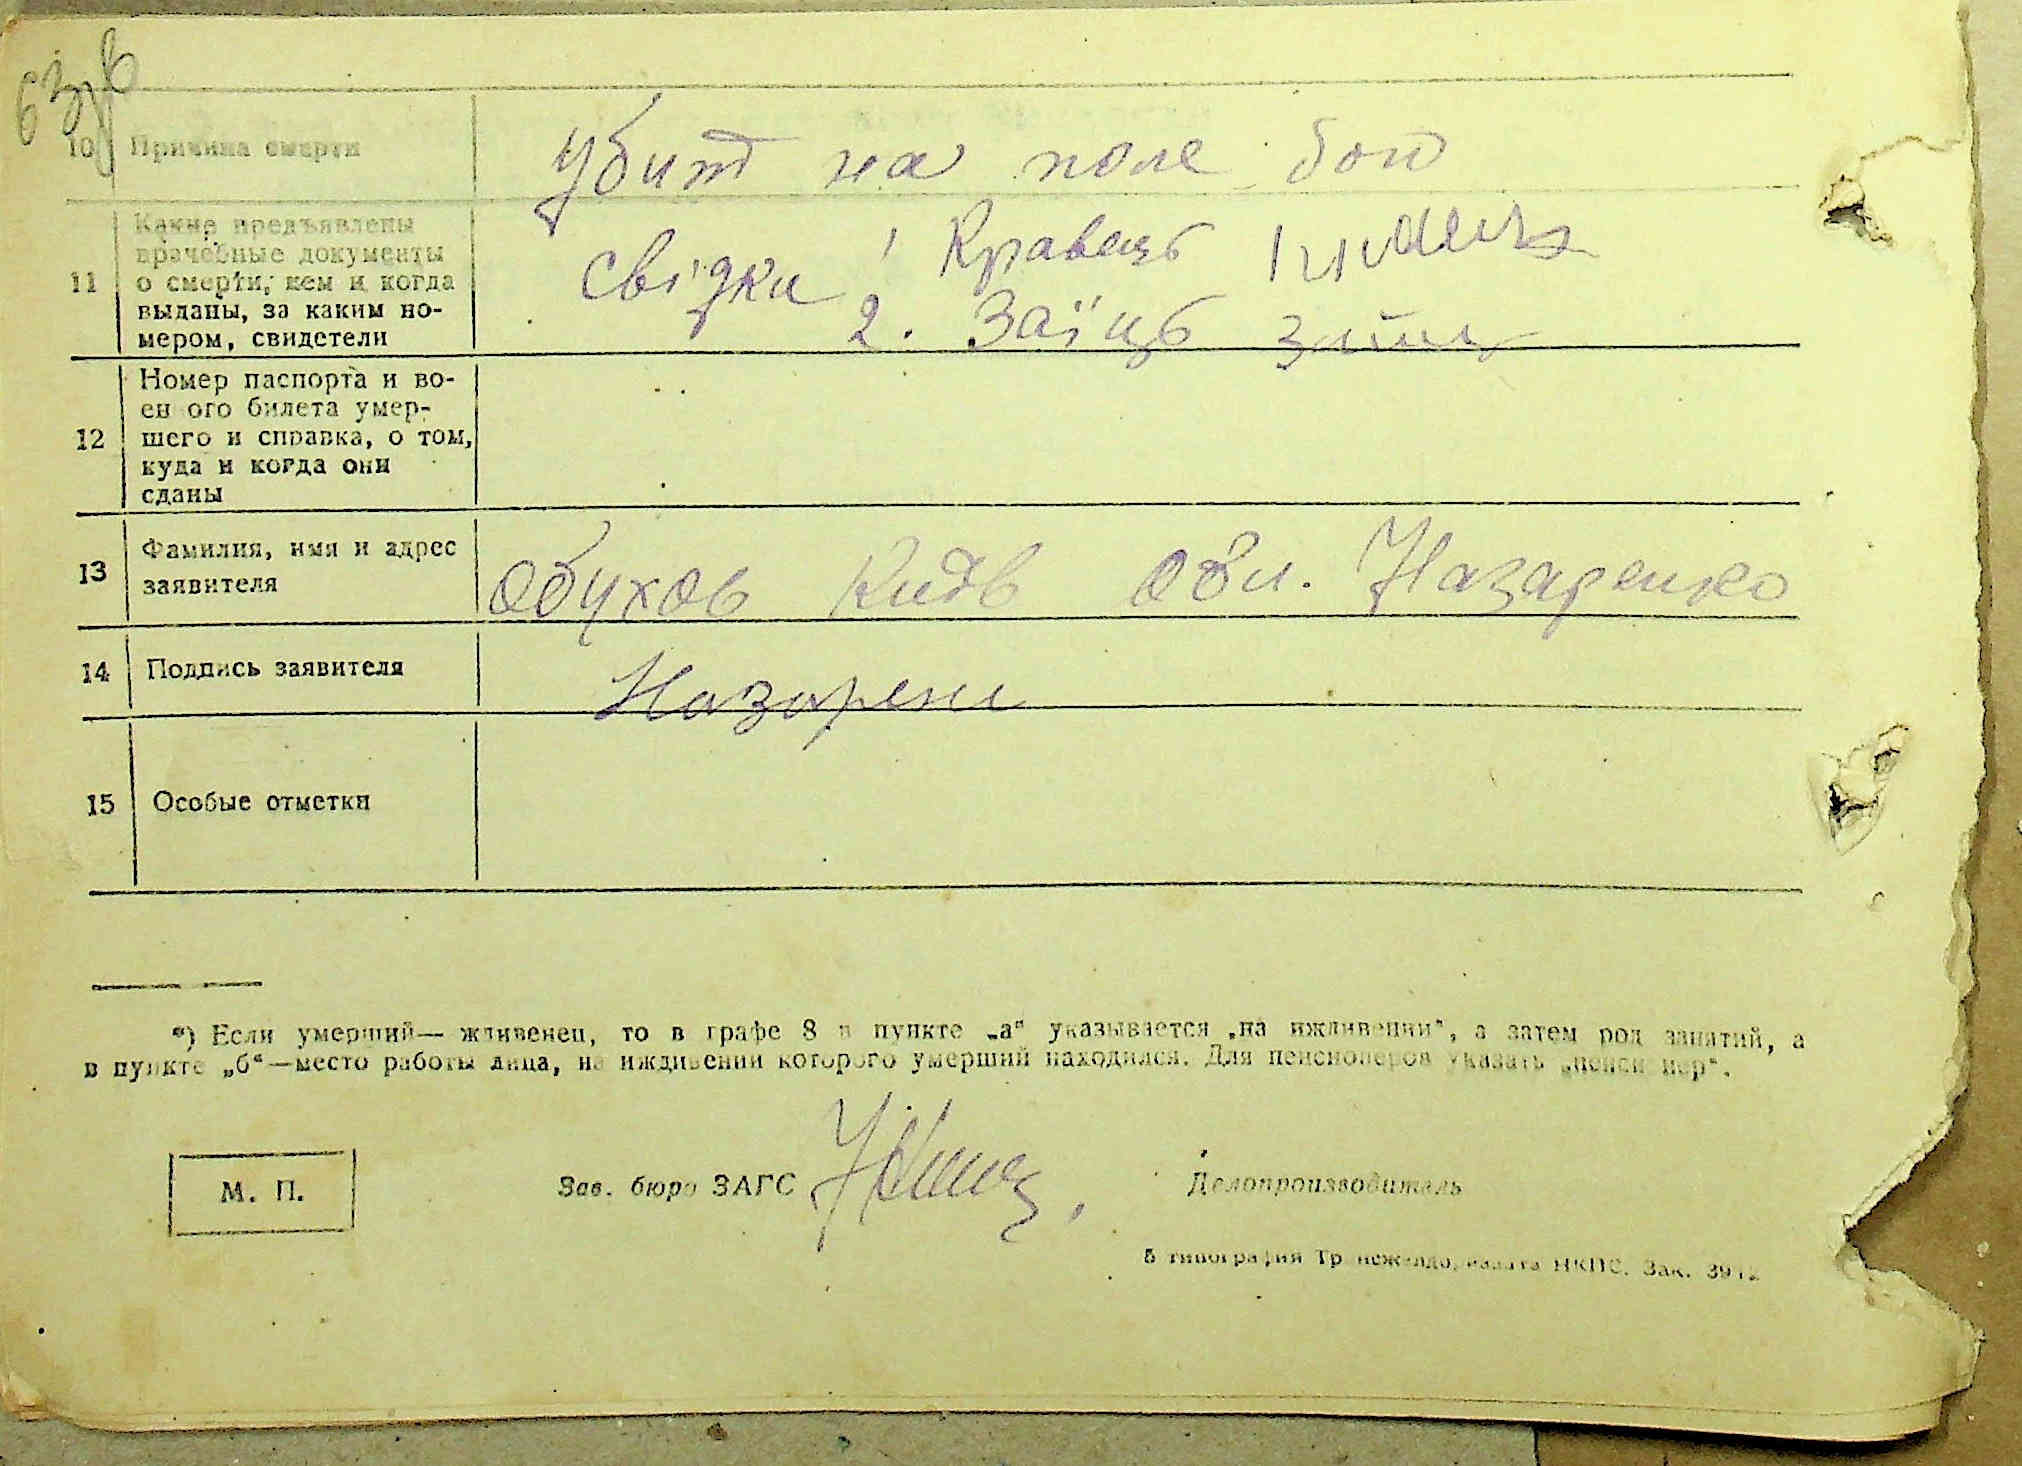 63
10 Причина смерти
Убит на поле боя
11 Какие предъявлены
врачебные документы
о смерти, кем и когда
выданы, за каким но-
мером, свидетели
свідки 1 Кравець
2. Заїць
12 Номер паспорта и во-
ен ого билета умер-
шего и справка, о том,
куда и когда они
сданы
13 Фамилия, имя и адрес
заявителя
Обухов Київ обл. Назаренко
14 Подпись заявителя
Назарен
15 Особые отметки
*) Если умерший— ждивенец, то в графе 8 в пункте „а“ указывается „на иждивении“, а затем род занятий, а
в пункте „б“—место работы лица, на иждивении которого умерший находился. Для пенсионеров указать „пенси нер“.
М. П.
Зав. бюро ЗАГС
Делопроизводитель
5 типография Трансжелдориздата НКПС. Зак.